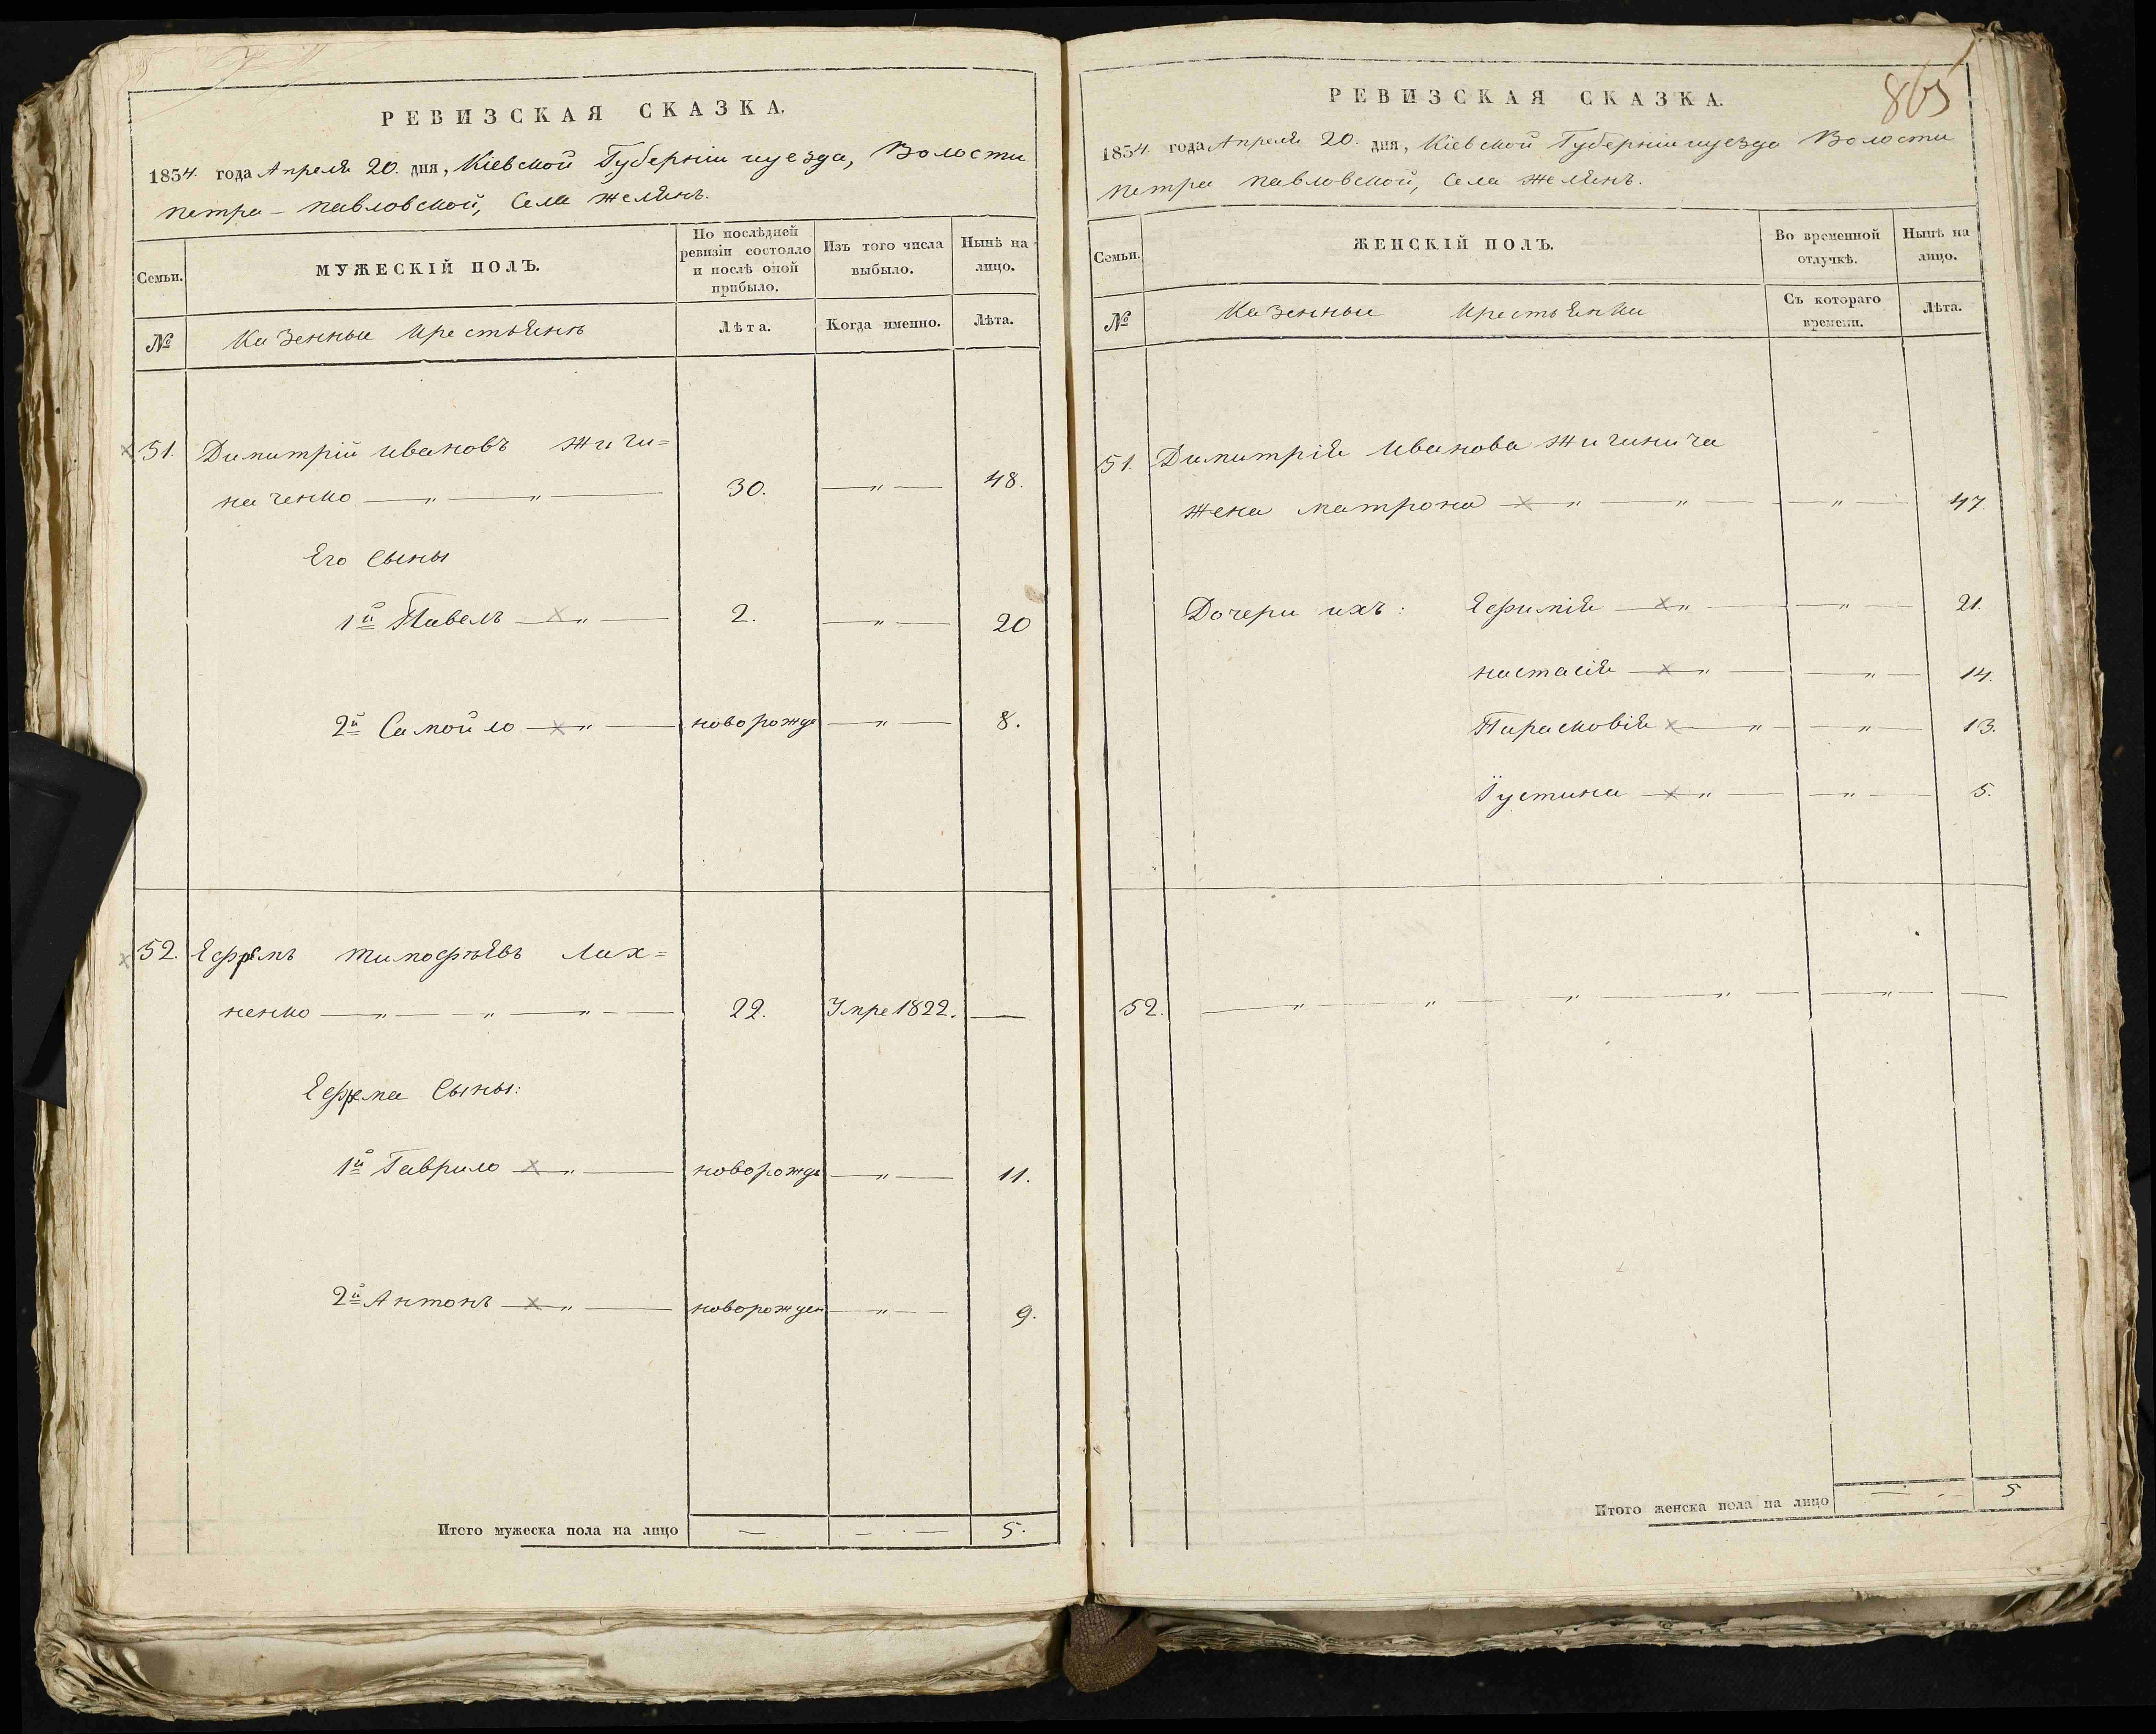 РЕВИЗСКАЯ СКАЗКА.
1834 года Апреля 20. дня, Кіевской Губерніи иуезда, Волости
петра-павловской, села желянъ.
Семьи.
МУЖЕСКІЙ ПОЛЪ.
По послѣдней ревизіи состояло и послѣ оной прибыло.
Изъ того числа выбыло.
Нынѣ на лицо.
№
Казенныи крестьянѣ
Лѣта.
Когда именно.
Лѣта.
51. Димитрій ивановъ жиги=
наченко — „ — „ — 30. — „ — 48.
Его Сыны
1й Павелъ — „ — 2. — „ — 20
2й Самойло — „ — новорожде — „ — 8.
52. Ефремъ тимофѣевъ Лах=
ненко — „ — „ — „ — 22. Умре 1822. —
Ефрема Сыны:
1й Гаврило — „ — новорожде — „ — 11.
2й Антонъ — „ — новорожден — „ — 9.
Итого мужеска пола на лицо — — · — 5.
865
РЕВИЗСКАЯ СКАЗКА.
1834 года Апреля 20. дня, Кіевской Губерніи иуезда Волости
петра павловской, села желянъ.
Семьи.
ЖЕНСКІЙ ПОЛЪ.
Во временной отлучкѣ.
Нынѣ на лицо.
№
Казенныи крестьянки
Съ котораго времени.
Лѣта.
51. Димитрія Иванова жигинича
жена матрона — „ — „ — — „ — 47.
Дочери ихъ: Ефимія — „ — — „ — 21.
настасія — „ — — „ — 14.
Парасковія — „ — — „ — 13.
Їустина — „ — — „ — 5.
52. — „ — „ — „ — „ — — „ — —
Итого женска пола на лицо — · - 5